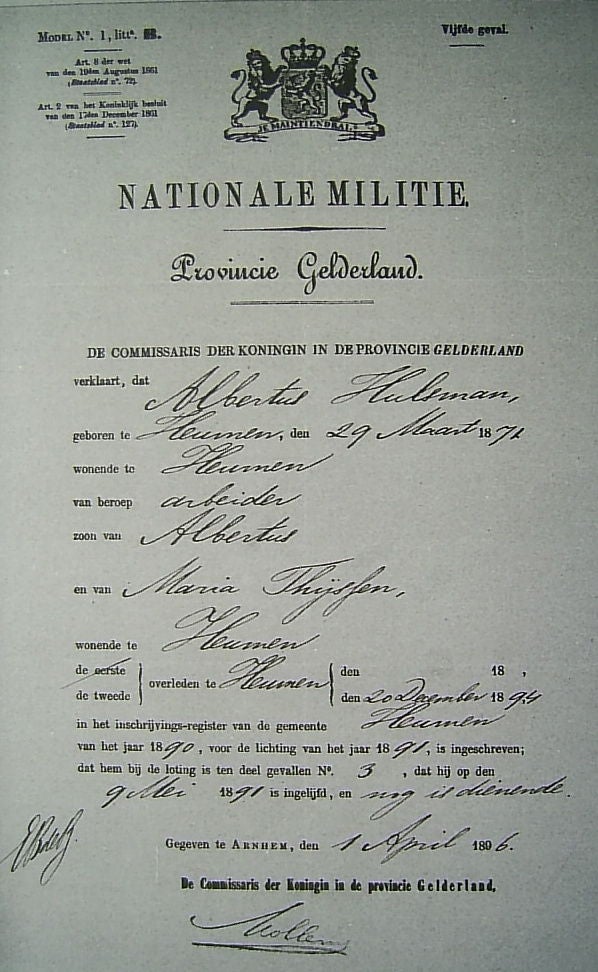 MODEL No. 1, litta. B.
Vijfde geval.
Art. 8 der wet
van den 19den Augustus 1861
(Staatsblad no. 72).
Art. 2 van het Koninklijk besluit
van den 17den December 1861
(Staatsblad no. 127).
JE MAINTIENDRAI
NATIONALE MILITIE.
Provincie Gelderland.
DE COMMISSARIS DER KONINGIN IN DE PROVINCIE GELDERLAND
verklaart, dat Albertus Hulsman,
geboren te Heumen, den 29 Maart 1871
wonende te Heumen
van beroep arbeider
zoon van Albertus
en van Maria Thijssen,
wonende te Heumen
de eerste overleden te Heumen den 18 ,
de tweede den 20 December 1894
in het inschrijvings-register van de gemeente Heumen
van het jaar 1890, voor de lichting van het jaar 1891, is ingeschreven;
dat hem bij de loting is ten deel gevallen No. 3, dat hij op den
9 Mei 1891 is ingelijfd, en nog is dienende.
Gegeven te ARNHEM, den 1 April 1896.
De Commissaris der Koningin in de provincie Gelderland,